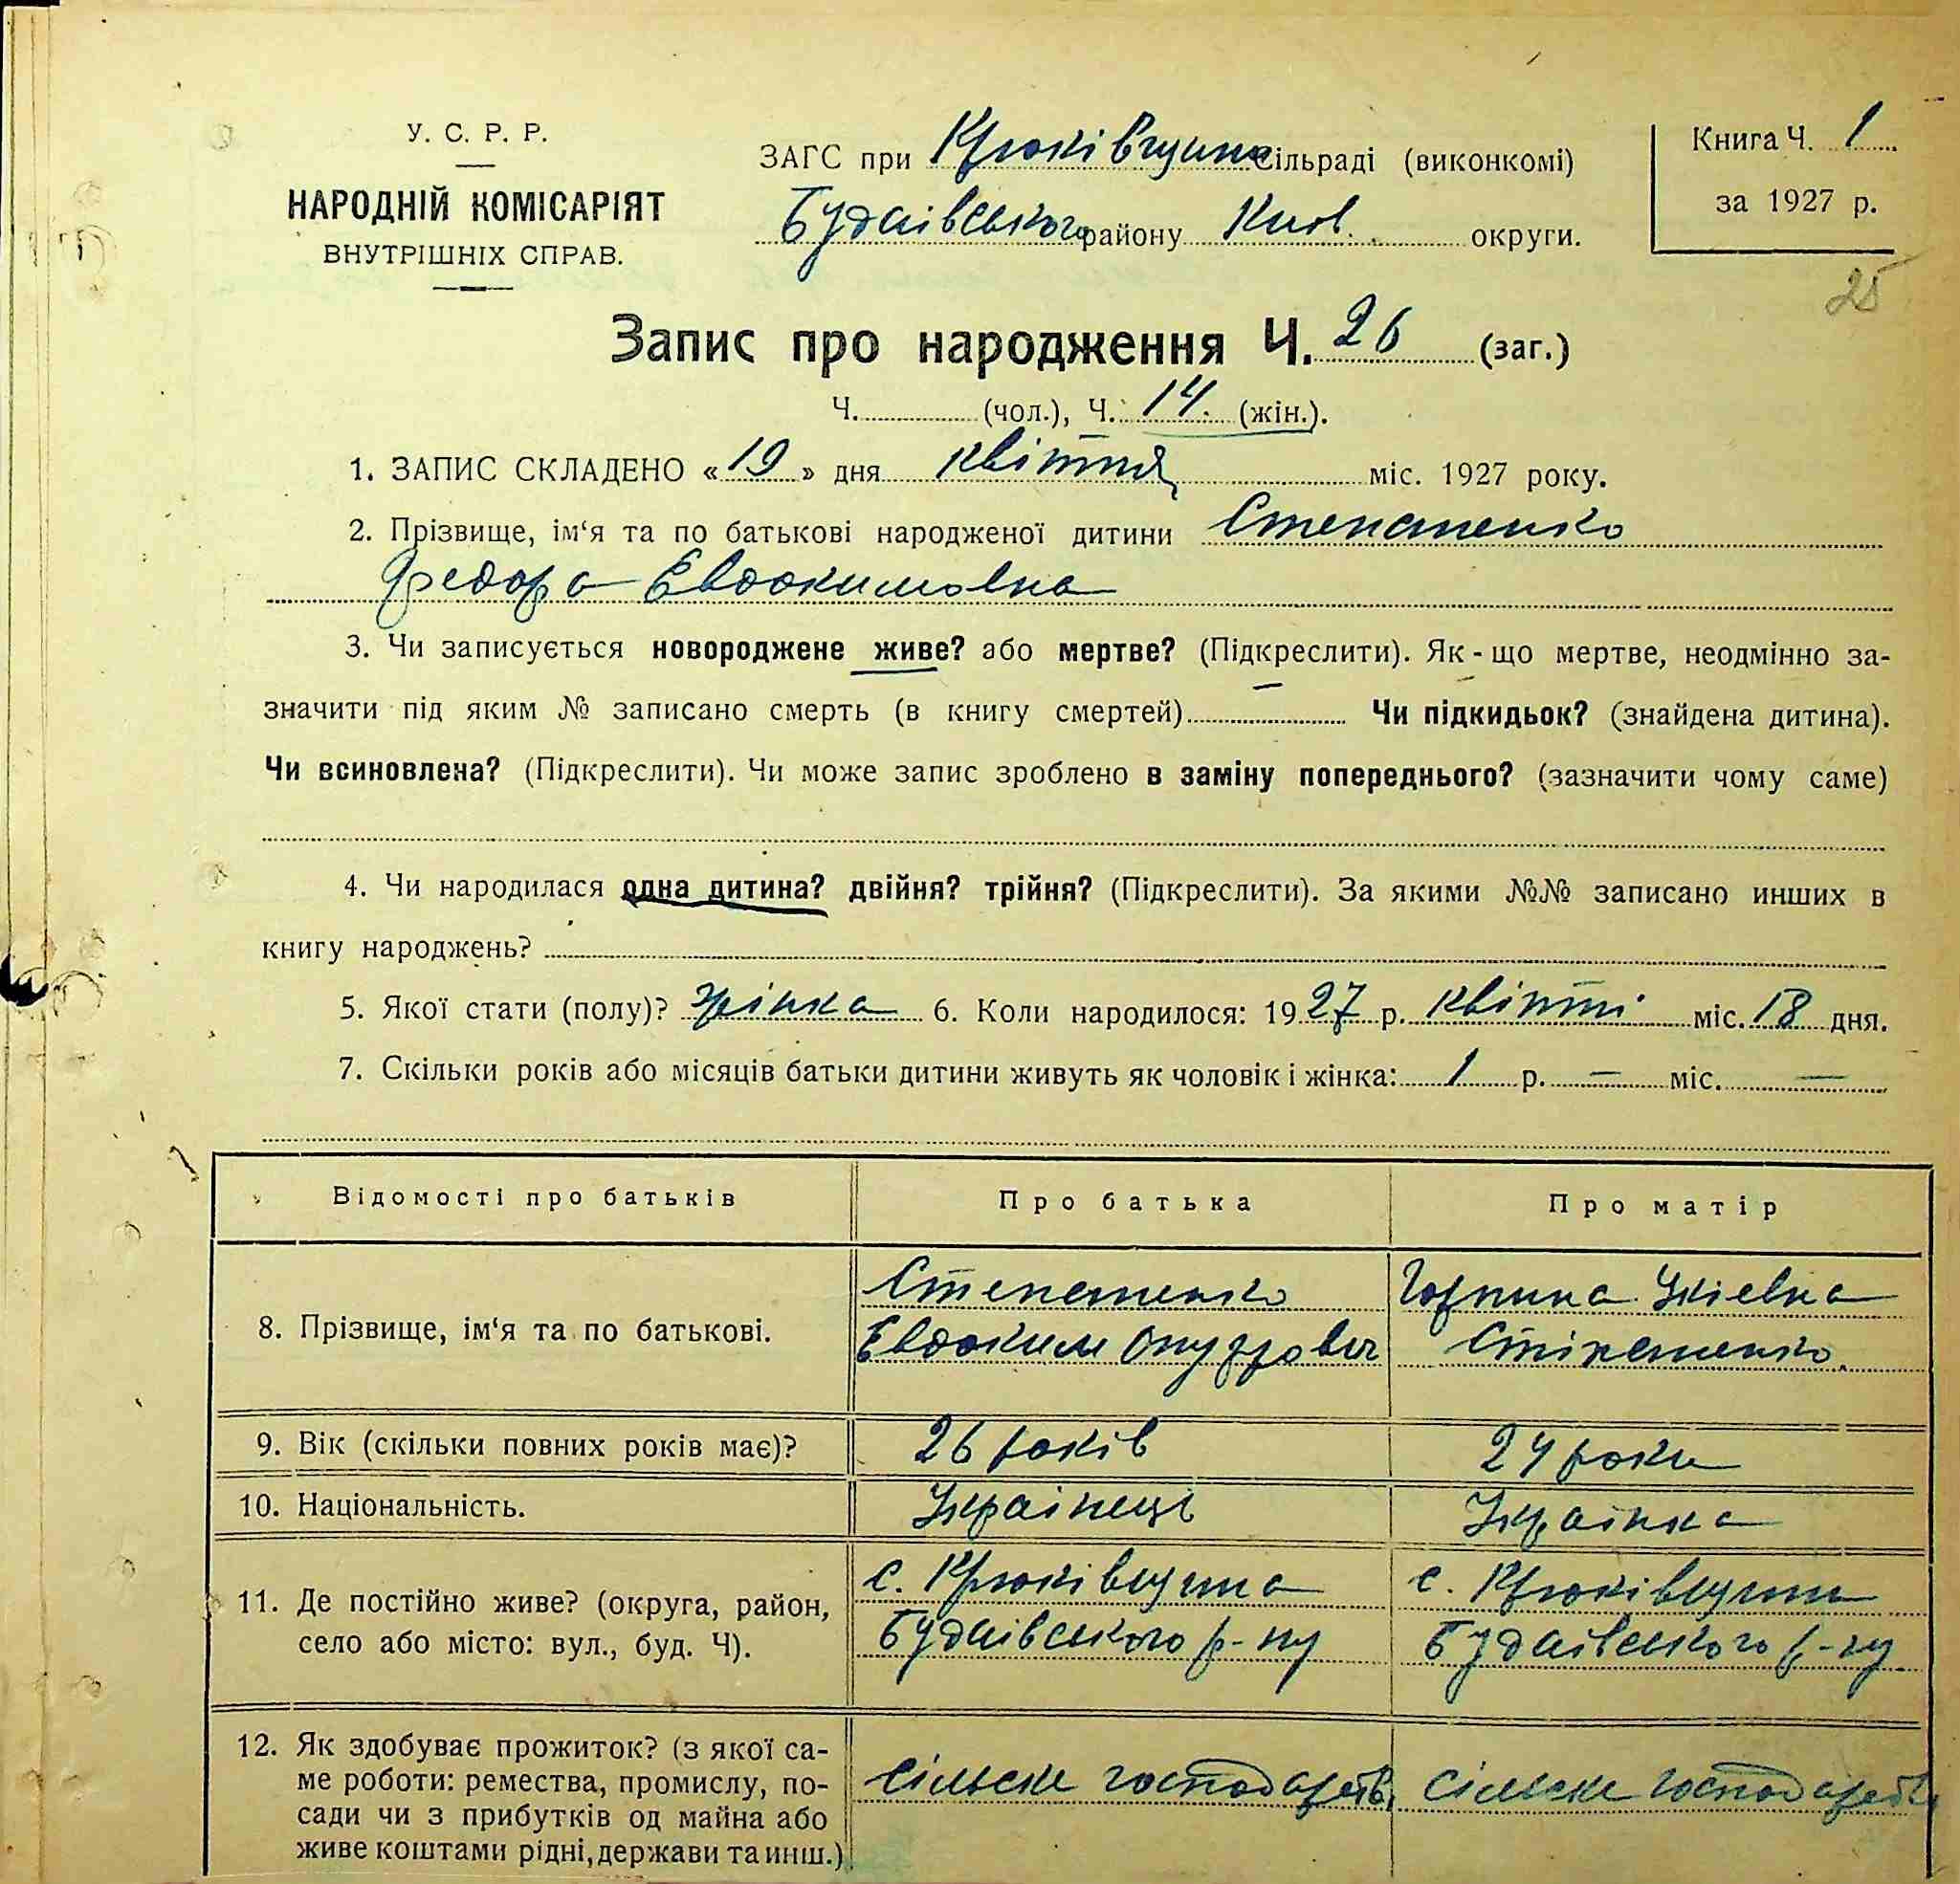 У. С. Р. Р.
НАРОДНІЙ КОМІСАРІЯТ
ВНУТРІШНІХ СПРАВ.
ЗАГС при Крюківщина сільраді (виконкомі)
Будаівського району Київ. округи.
Книга Ч. 1
за 1927 р.
25
Запис про народження Ч. 26 (заг.)
Ч. (чол.), Ч. 14. (жін.).
1. ЗАПИС СКЛАДЕНО «19» дня квітня міс. 1927 року.
2. Прізвище, ім‘я та по батькові народженої дитини Степаненко
Федора Евдокимовна
3. Чи записується новороджене живе? або мертве? (Підкреслити). Як-що мертве, неодмінно за-
значити під яким № записано смерть (в книгу смертей) Чи підкидьок? (знайдена дитина).
Чи всиновлена? (Підкреслити). Чи може запис зроблено в заміну попереднього? (зазначити чому саме)
4. Чи народилася одна дитина? двійня? трійня? (Підкреслити). За якими №№ записано инших в
книгу народжень?
5. Якої стати (полу)? жінка 6. Коли народилося: 1927 р. квітні міс. 18 дня.
7. Скільки років або місяців батьки дитини живуть як чоловік і жінка: 1 р. — міс. —
Відомості про батьків Про батька Про матір
8. Прізвище, ім‘я та по батькові.
Степаненко
Евдоким
Горпина
Стіпаненко
9. Вік (скільки повних років має)? 26 років 24 роки
10. Національність. Украінець Украінка
11. Де постійно живе? (округа, район,
село або місто: вул., буд. Ч).
с. Крюківщина
Будаівського р-ну
с. Крюківщина
Будаівського р-ну
12. Як здобуває прожиток? (з якої са-
ме роботи: ремества, промислу, по-
сади чи з прибутків од майна або
живе коштами рідні, держави та инш.)
сільске господарств
сільске господарств